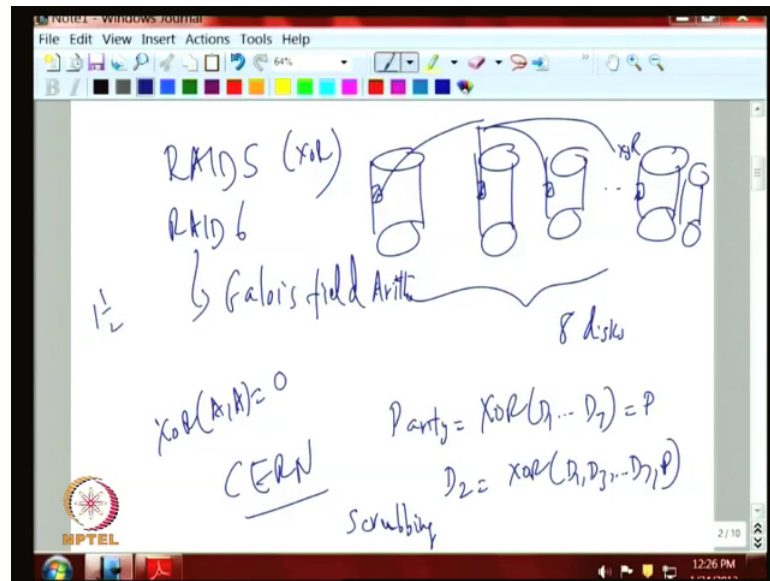 Note1 - Windows Journal
File Edit View Insert Actions Tools Help
64%
B I
RAID5 (XOR)
XOR
RAID6
Galois field Arith
1 1/2
8 disks
XOR(A,A)=0
Parity = XOR(D1...D7) = P
CERN
D2 = XOR(D1,D3,...D7,P)
Scrubbing
NPTEL
2 / 10
12:26 PM